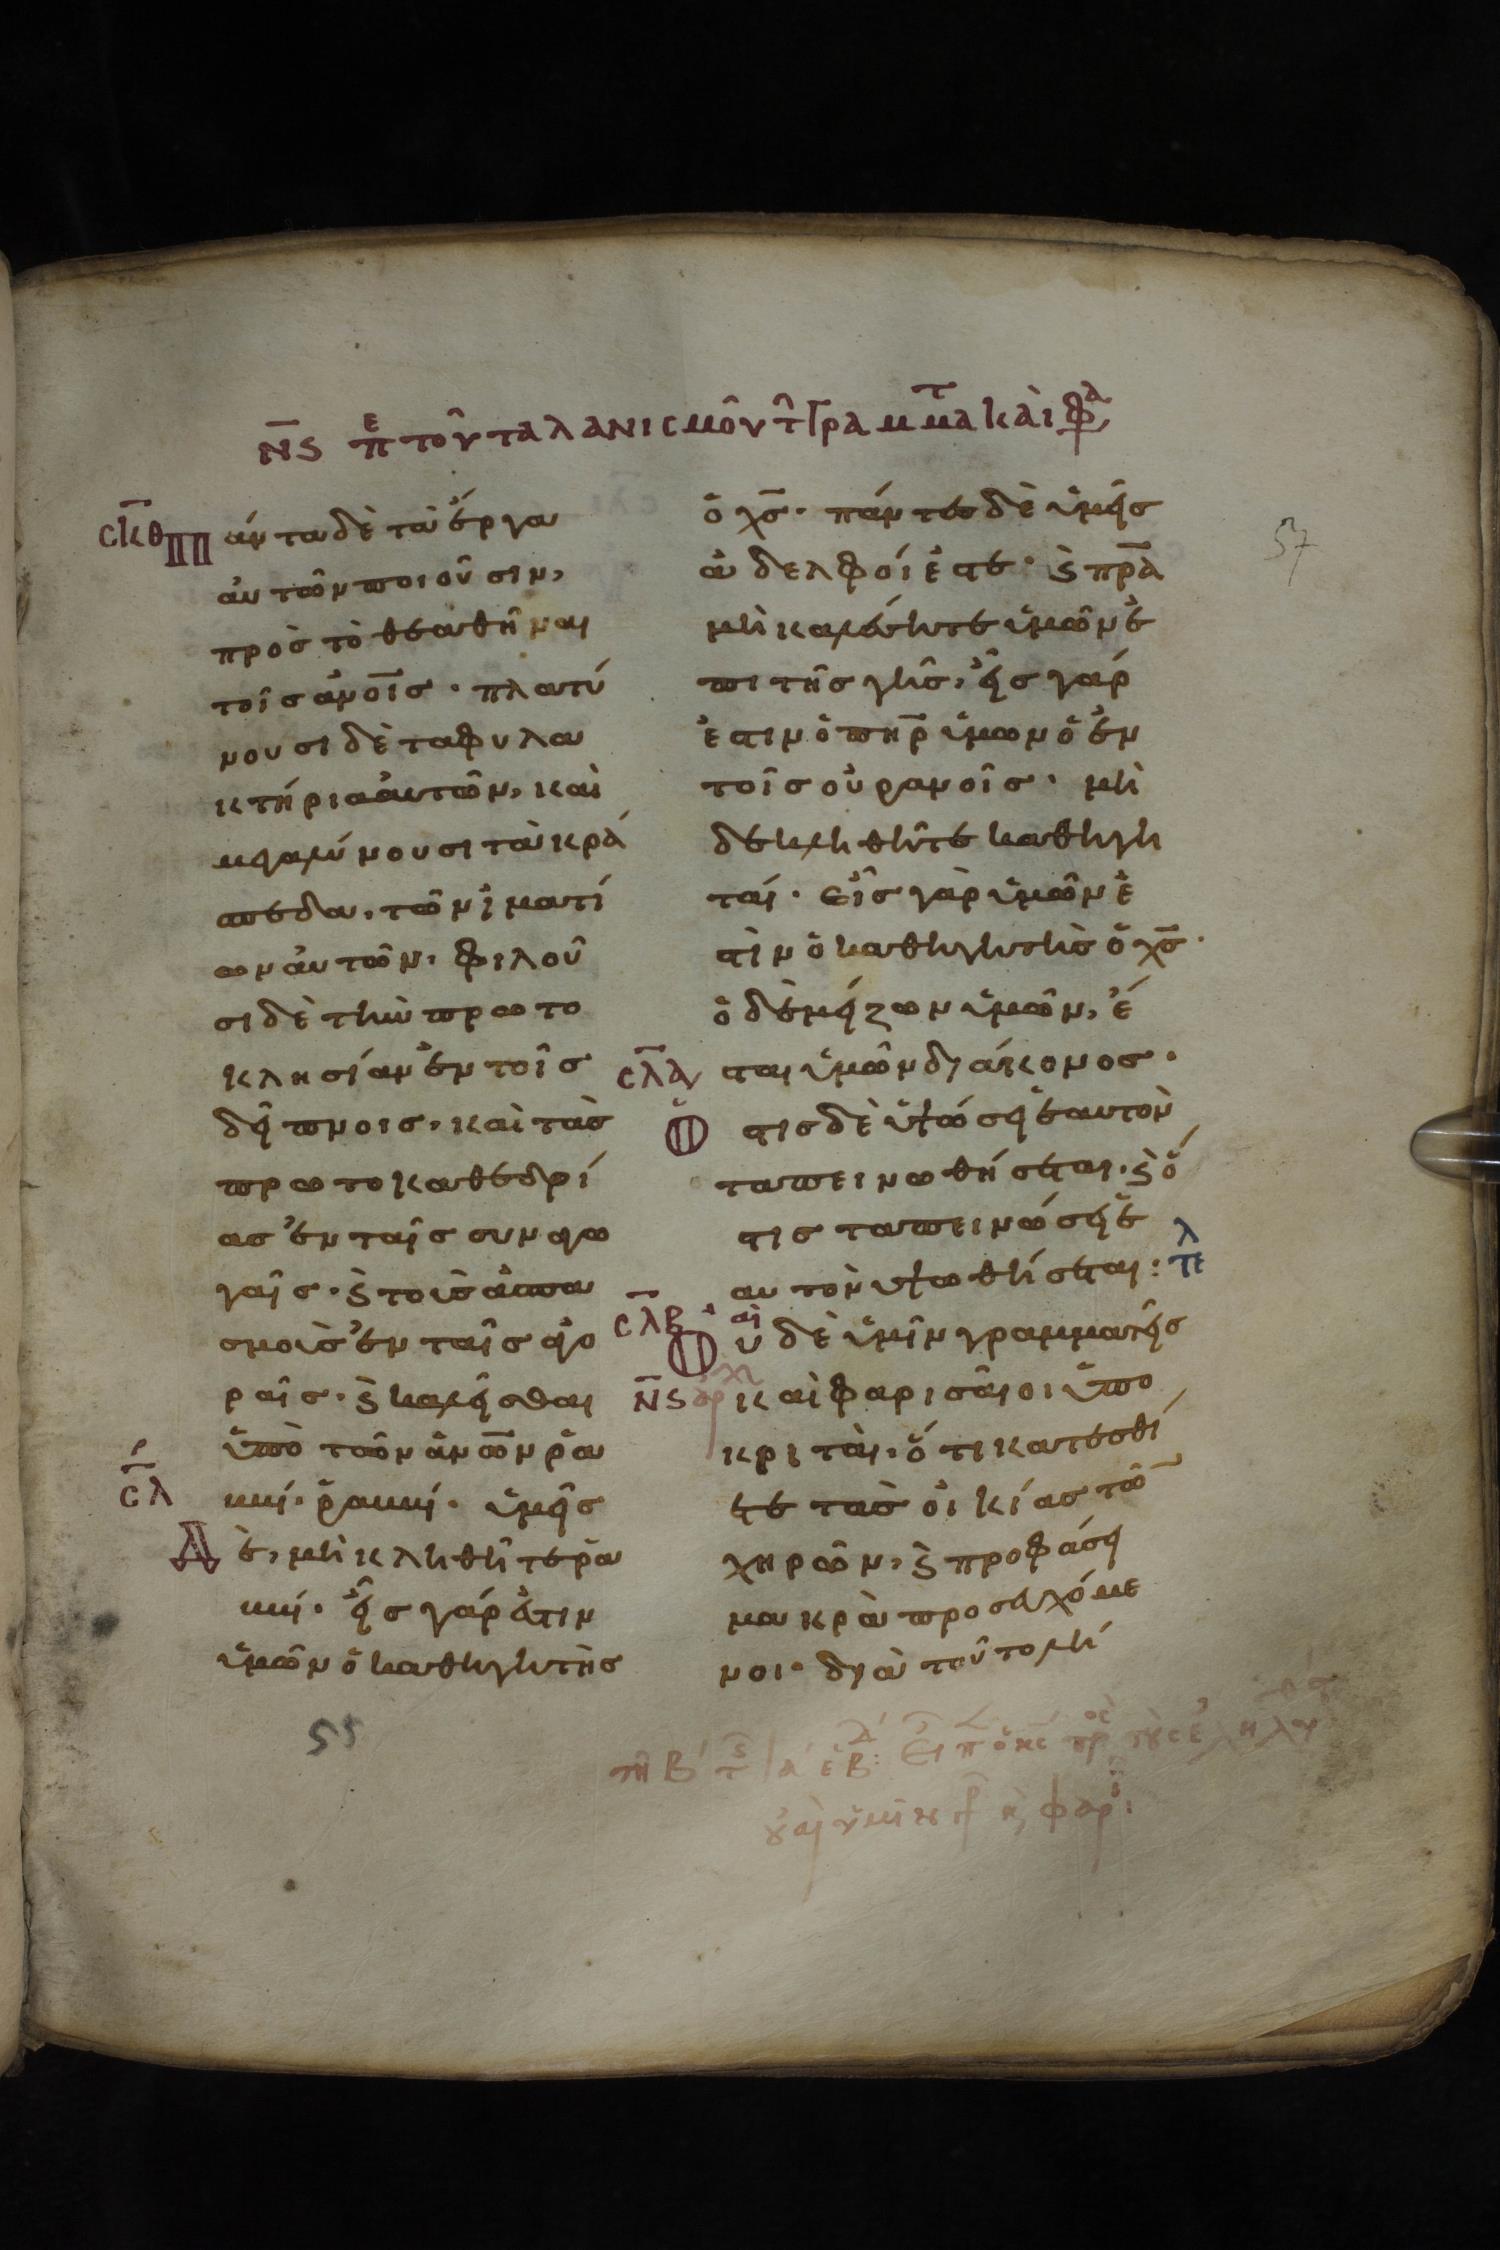 Ν̅Ϛ π̅ε τοῦ ταλανισμοῦ τ̑ Γραμματ̅ καὶ φα
57
σ̅κ̅θ Πάντα δὲ τὰ ἔργα
αὐτῶν ποιοῦσιν,
πρὸς τὸ θεαθῆναι
τοῖς ἀνο̅ι̅ς · πλατύ
νουσι δὲ τα φυλα
κτήρια αὐτῶν, καὶ
μεγαλύνουσι τὰ κρά
σπεδα, τῶν ἱματί
ων αὐτῶν. φιλοῦ
σι δὲ τὴν πρωτο
κλησίαν ἐν τοῖς
δείπνοις, καὶ τὰς
πρωτοκαθεδρί
ας ἐν ταῖς συναγω
γαῖς · ϗ τοὺς ἀσπα
σμοὺς ἐν ταῖς ἀγο
ραῖς · ϗ καλεῖσθαι
ὑπὸ τῶν ἀν̅ω̅ν ῥα
ββί · ῥαββί · ὑμεῖς
σ̅λ
Δὲ, μὴ κληθῆτε ῥα
ββί · εἷς γάρ ἐστιν
ὑμῶν ὁ καθηγητὴς
ὁ χ̅ς · πάντες δὲ ὑμεῖς
ἀδελφοί ἐστε · ϗ π̅ρ̅α
μὴ καλέσητε ὑμῶν ἐ
πι τῆς γῆς, εἷς γάρ
ἐστιν ὁ πη̅ρ ὑμων ὁ ἐν
τοῖς οὐρανοῖς · μὴ
δὲ κληθῆτε καθηγη
ταί · εἷς γὰρ ὑμῶν ἐ
στὶν ὁ καθηγητὴς ὁ χ̅ς ·
ὁ δὲ μείζων ὑμῶν, ἔ
σ̅λ̅α σται ὑμῶν διάκονος ·
Ὅστις δὲ ὑψώσει ἑαυτὸν
ταπεινωθήσεται · ϗ ὅ
στις ταπεινώσει ἑ
αυτὸν ὑψωθήσεται :
σ̅λ̅β Οὐαὶ δὲ ὑμῖν γραμματεῖς
Ν̅Ϛ καὶ φαρισαῖοι ὑπο
κριταὶ, ὅτι κατεσθί
ετε τὰς οἰκίας τῶ̅
χηρῶν, ϗ προφάσει
μακρὰ προσευχόμε
νοι · διὰ τοῦτο λή
55
οὐαὶ ὑμῖν γρ ϗ φαρ :